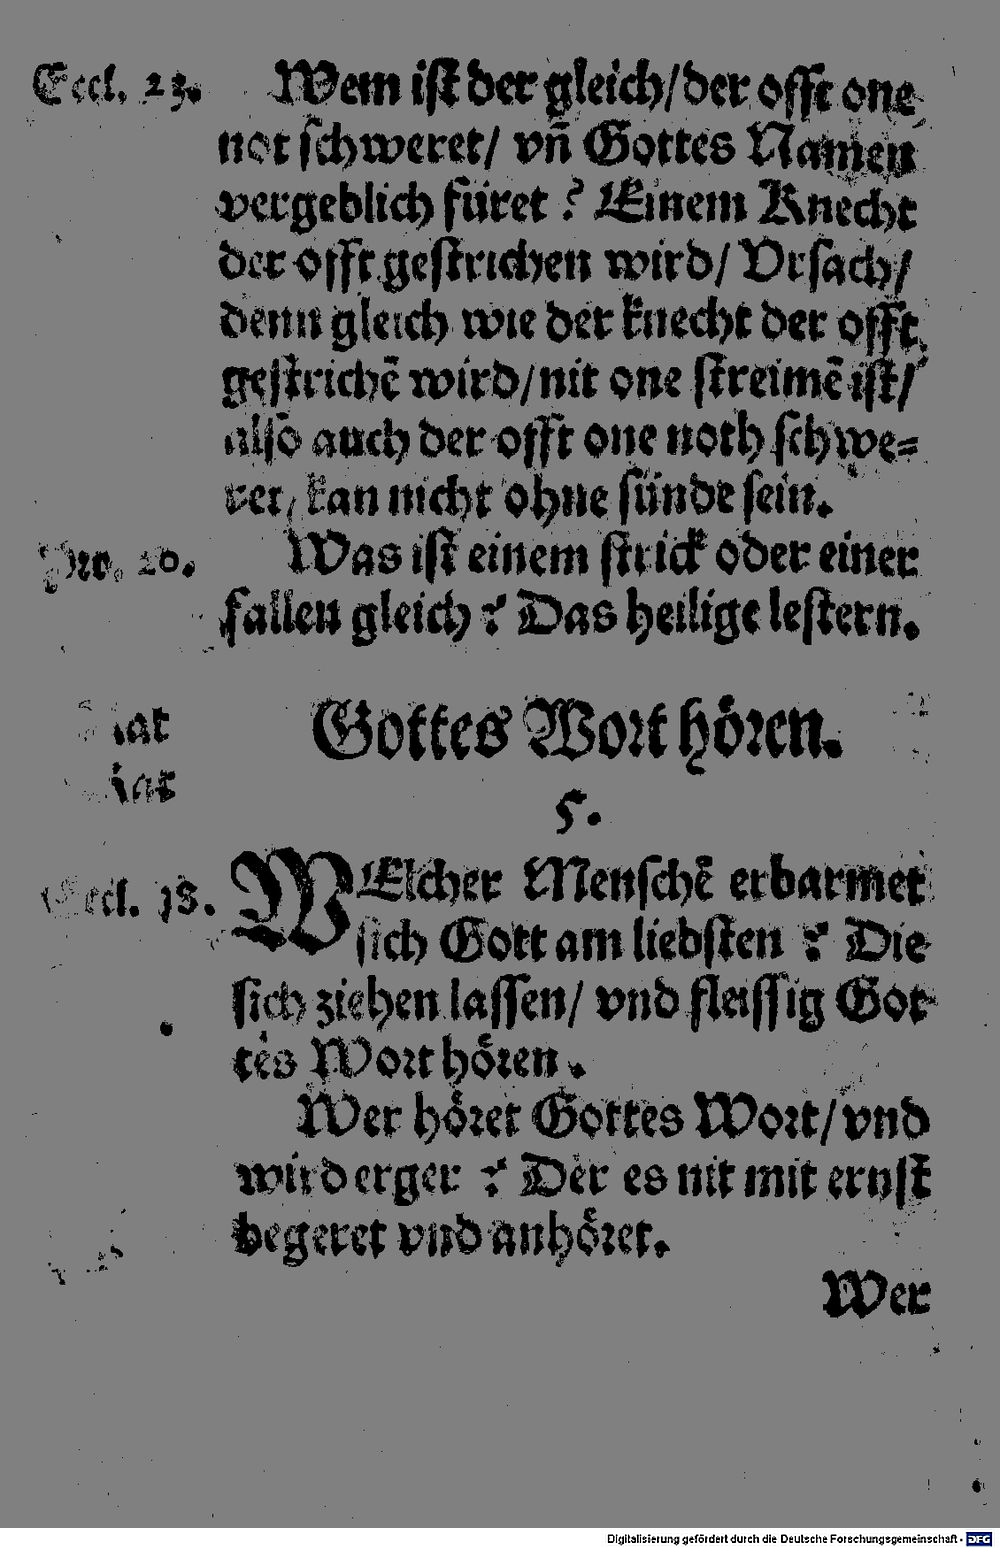 Eccl. 23. Wem ist der gleich/der offt one
not schweret/ vñ Gottes Namen
vergeblich füret? Einem Knecht
der offt gestrichen wird/ Vrsach/
denn gleich wie der knecht der offt
gestrichē wird/nit one streimē ist/
also auch der offt one noth schwe=
ret/ kan nicht ohne sünde sein.
Pro. 20. Was ist einem strick oder einer
fallen gleich? Das heilige lestern.
Gottes Wort hören.
5.
Eccl. 18. WElcher Menschē erbarmet
sich Gott am liebsten? Die
sich ziehen lassen/ vnd fleissig Got
tes Wort hören.
Wer höret Gottes Wort/vnd
wird erger? Der es nit mit ernst
begeret vnd anhöret.
Wer
Digitalisierung gefördert durch die Deutsche Forschungsgemeinschaft - DFG